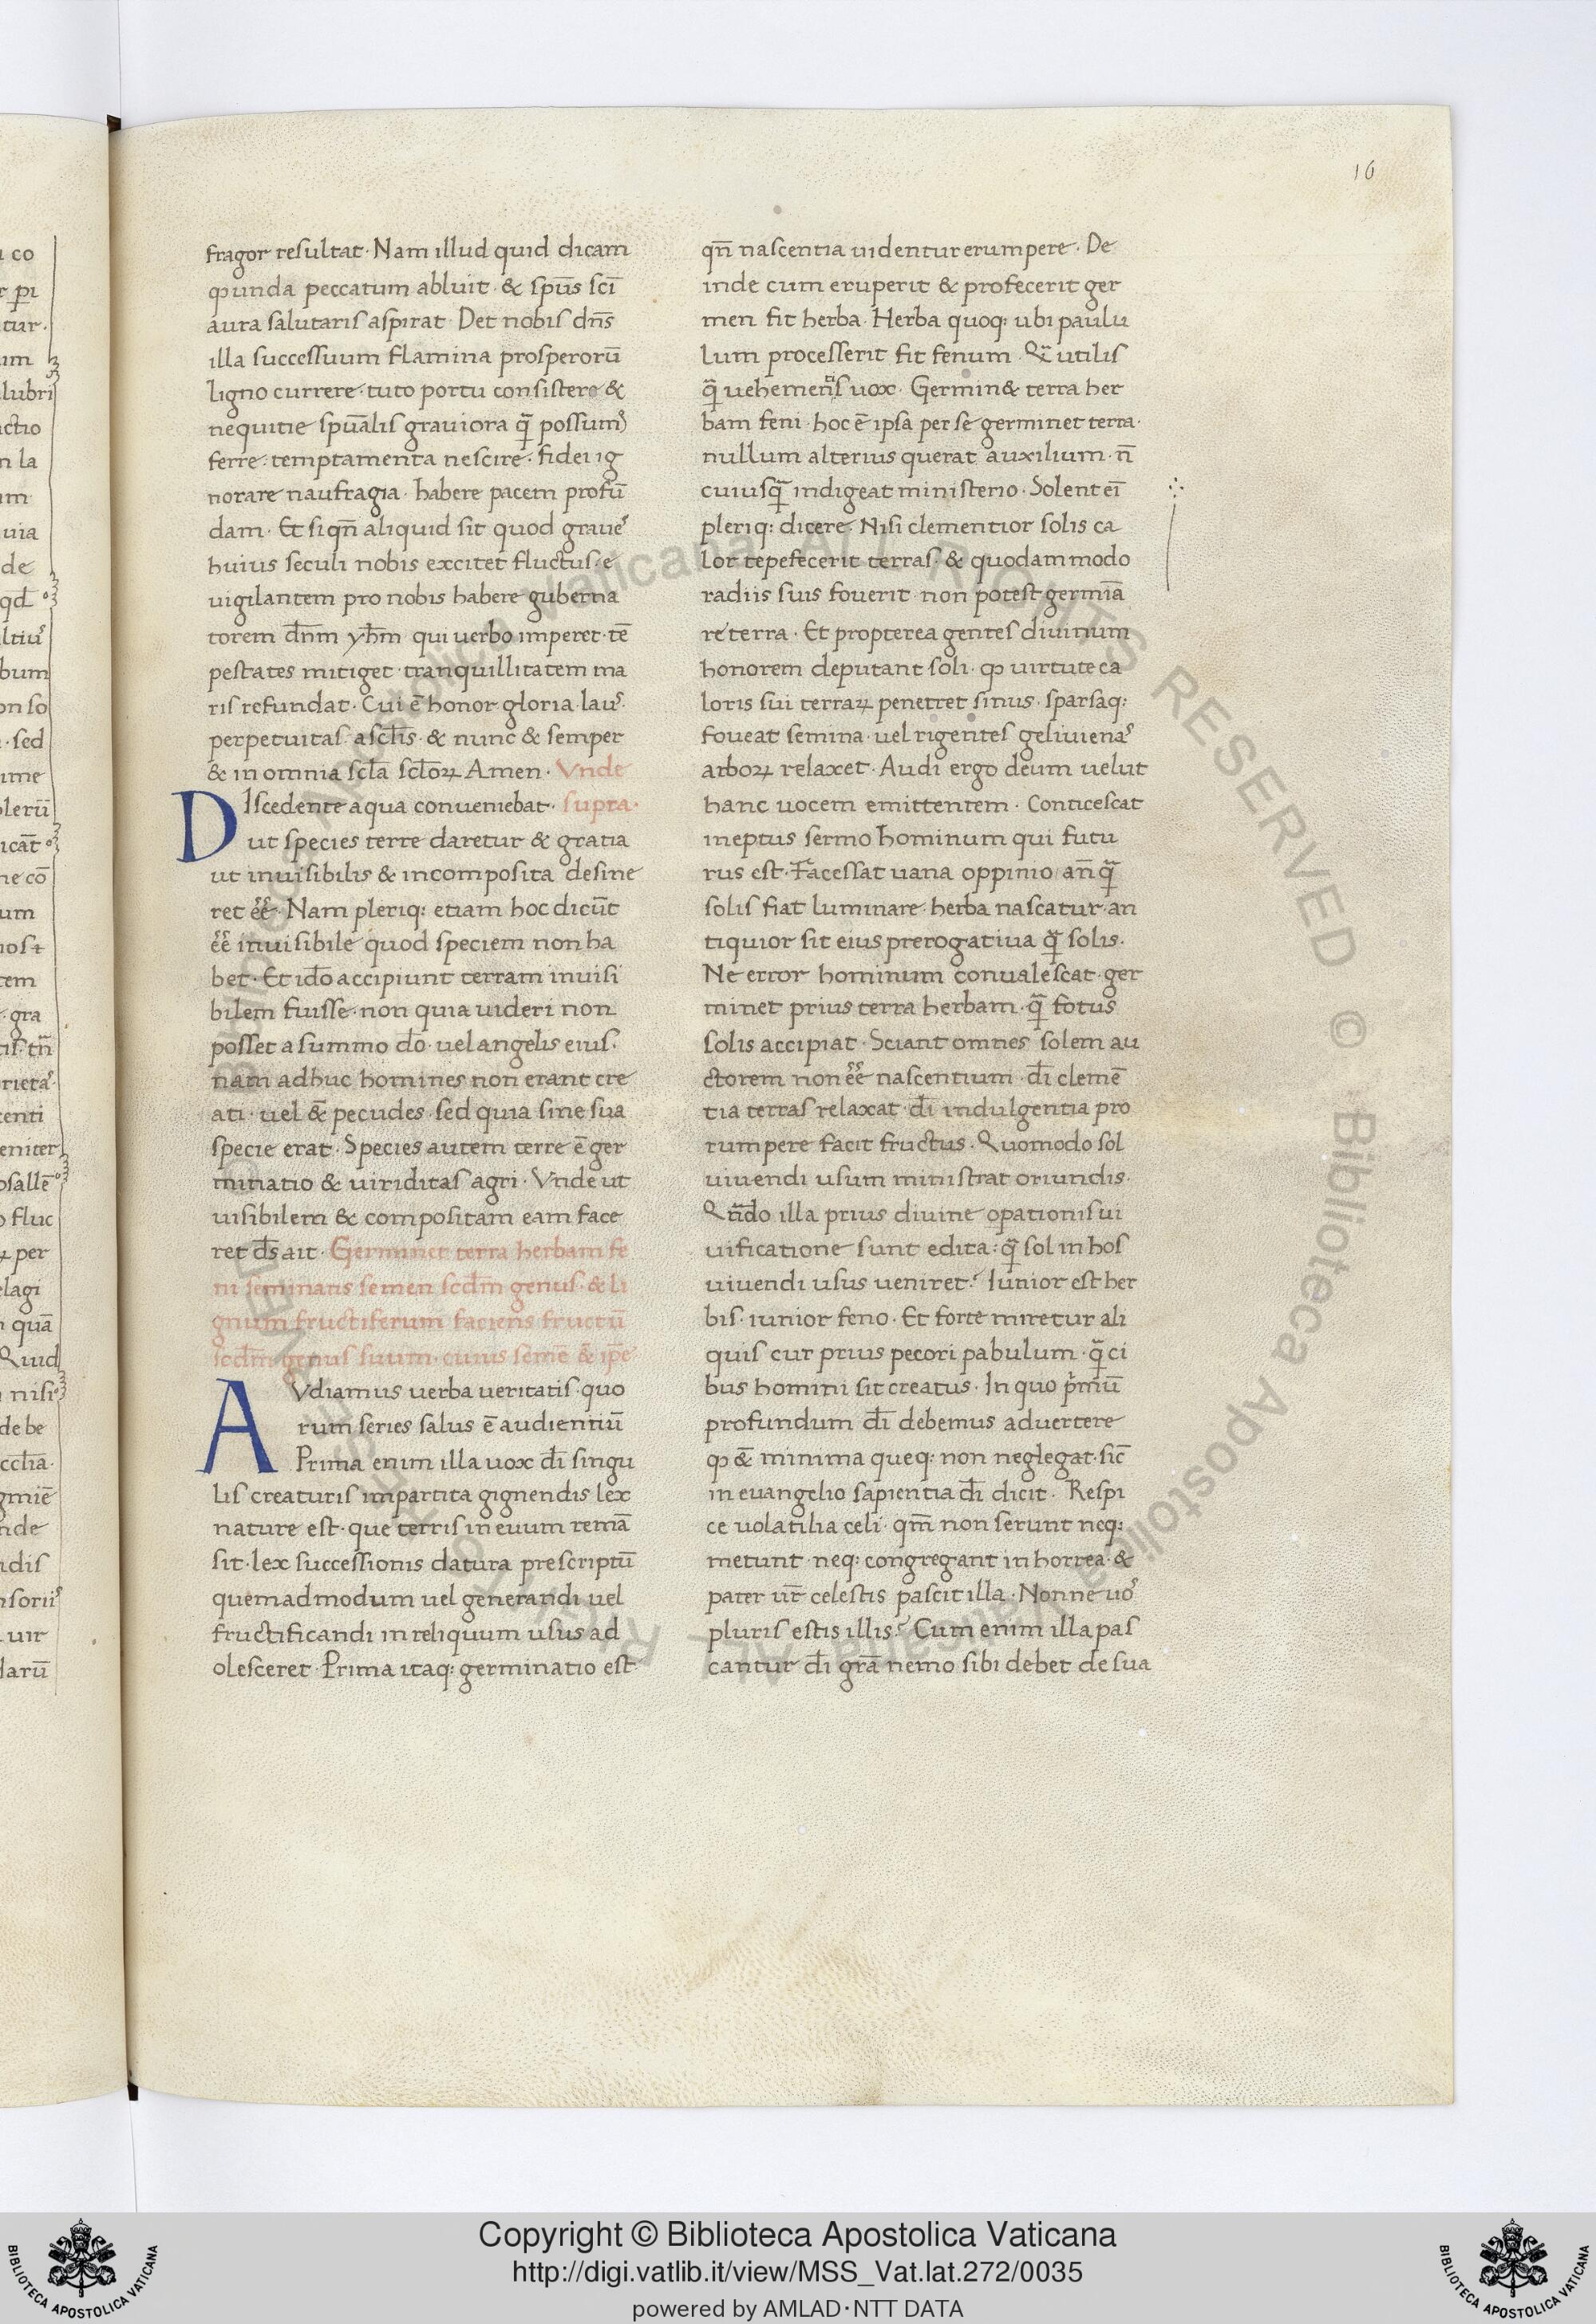 16
fragor resultat · Nam illud quid dicam
ꝙ unda peccatum abluit · & sp̅u̅s sc̅i
aura salutaris aspirat · Det nobis dn̅s
illa successuum flamina prosperoru̅
ligno currere · tuto portu consistere &
nequitie spu̅alis graviora qua̅ possumꝰ
ferre · temptamenta nescire · fidei ig
norare naufragia · habere pacem profu̅
dam · Et siqn̅ aliquid sit quod graues
huius seculi nobis excitet fluctus · e
uigilantem pro nobis habere guberna
torem dn̅m yh̅m qui uerbo imperet · te̅
pestates mitiget · tranquillitatem ma
ris refundat · Cui e̅ honor gloria · laus ·
perpetuitas · a scl̅is · & nunc & semper
& in omnia scl̅a scl̅oꝝ Amen · Vnde
DIscedente aqua conueniebat · supra ·
ut species terre daretur & gratia
ut inuisibilis & incomposita desine
ret e̅e̅ · Nam pleriq: etiam hoc dicu̅t
e̅e̅ inuisibile quod speciem non ha
bet · Et id̅o accipiunt terram inuisi
bilem fuisse · non quia uideri non
posset a summo d̅o · uel angelis eius ·
nam adhuc homines non erant cre
ati · uel &̅ pecudes · sed quia sine sua
specie erat · Species autem terre e̅ ger
minatio & uiriditas agri · Vnde ut
uisibilem & compositam eam face
ret d̅s ait · Germinet terra herbam fe
ni seminans semen scd̅m genus · & li
gnum fructiferum faciens fructu̅
scd̅m genus suum · cuius seme̅ &̅ ip̅e
AVdiamus uerba ueritatis · quo
rum series salus e̅ audientiu̅
Prima enim illa uox d̅i singu
lis creaturis impartita gignendis lex
nature est · que terris in euum rema̅
sit · lex successionis datura prescriptu̅
quemadmodum uel generandi uel
fructificandi in reliquum usus ad
olesceret · Prima itaq: germinatio est
qn̅ nascentia uidentur erumpere · De
inde cum eruperit & profecerit ger
men fit herba · Herba quoq: ubi paulu
lum processerit fit fenum · Qua̅ utilis
qua̅ uehemens uox · Germin& terra her
bam feni · hoc e̅ ipsa per se germinet terra ·
nullum alterius querat auxilium · n̅
cuiusqua̅ indigeat ministerio · Solent ei̅
pleriq: dicere · Nisi clementior solis ca
lor tepefecerit terras · & quodam modo
radiis suis fouerit · non potest germi̅a̅
re terra · Et propterea gentes divinum
honorem deputant soli · ꝙ uirtute ca
loris sui terraꝝ penetret sinus · sparsaq:
foueat semina · uel rigentes geli uenas
arboꝝ relaxet · Audi ergo deum uelut
hanc uocem emittentem · Conticescat
ineptus sermo hominum qui futu
rus est · Facessat uana oppinio · an̅qua̅
solis fiat luminare · herba nascatur · an
tiquior sit eius prerogatiua qua̅ solis ·
Ne error hominum conualescat · ger
minet prius terra herbam · qua̅ fotus
solis accipiat · Sciant omnes solem au
ctorem non e̅e̅ nascentium · d̅i cleme̅
tia terras relaxat · d̅i indulgentia pro
rumpere facit fructus · Quomodo sol
uiuendi usum ministrat oriundis ·
Qn̅do illa prius diuine oꝑationis ui
uificatione sunt edita: qua̅ sol in hos
uiuendi usus ueniret? Iunior est her
bis · iunior feno · Et forte miretur ali
quis cur prius pecori pabulum · qua̅ ci
bus homini sit creatus · In quo primu̅
profundum d̅i debemus aduertere
ꝙ &̅ minima queq: non neglegat · sic̅
in euangelio sapientia d̅i dicit · Respi
ce uolatilia celi · qm̅ non serunt neq:
metunt · neq: congregant in horrea · &
pater ur̅ celestis pascit illa · Nonne uos
pluris estis illis? Cum enim illa pas
cantur d̅i gra̅ nemo sibi debet de sua
Copyright © Biblioteca Apostolica Vaticana
http://digi.vatlib.it/view/MSS_Vat.lat.272/0035
powered by AMLAD·NTT DATA
BIBLIOTECA APOSTOLICA VATICANA
BIBLIOTECA APOSTOLICA VATICANA